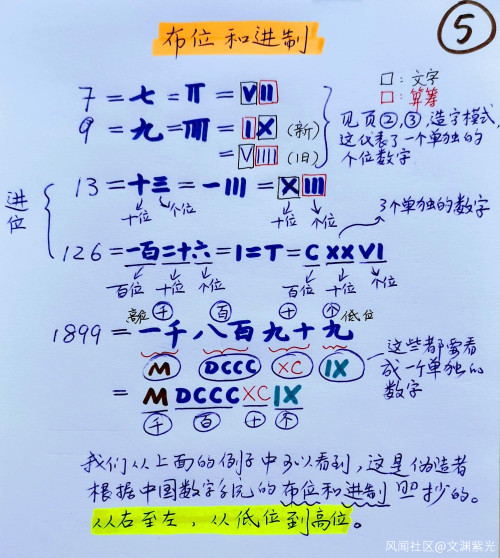 布位和进制
⑤
□:文字
□:算筹
7=七=𝍧=VII
9=九=𝍩=IX(新)
=VIIII(旧)
见页②,③,造字模式,
这代表了一个单独的
个位数字
进位
13=十三=一III=XIII
十位 个位 十位 个位
3个单独的数字
126=一百二十六=I=T=CXXVI
百位 十位 个位 百位 十位 个位
高位 千 百 十 个 低位
1899=一千八百九十九
M DCCC XC IX
这些都要看
成一个单独的
数字
=MDCCCXCIX
千 百 十 个
我们从上面的例子中可以看到,这是伪造者
根据中国数字系统的布位和进制照抄的。
从右至左,从低位到高位。
风闻社区@文渊紫光